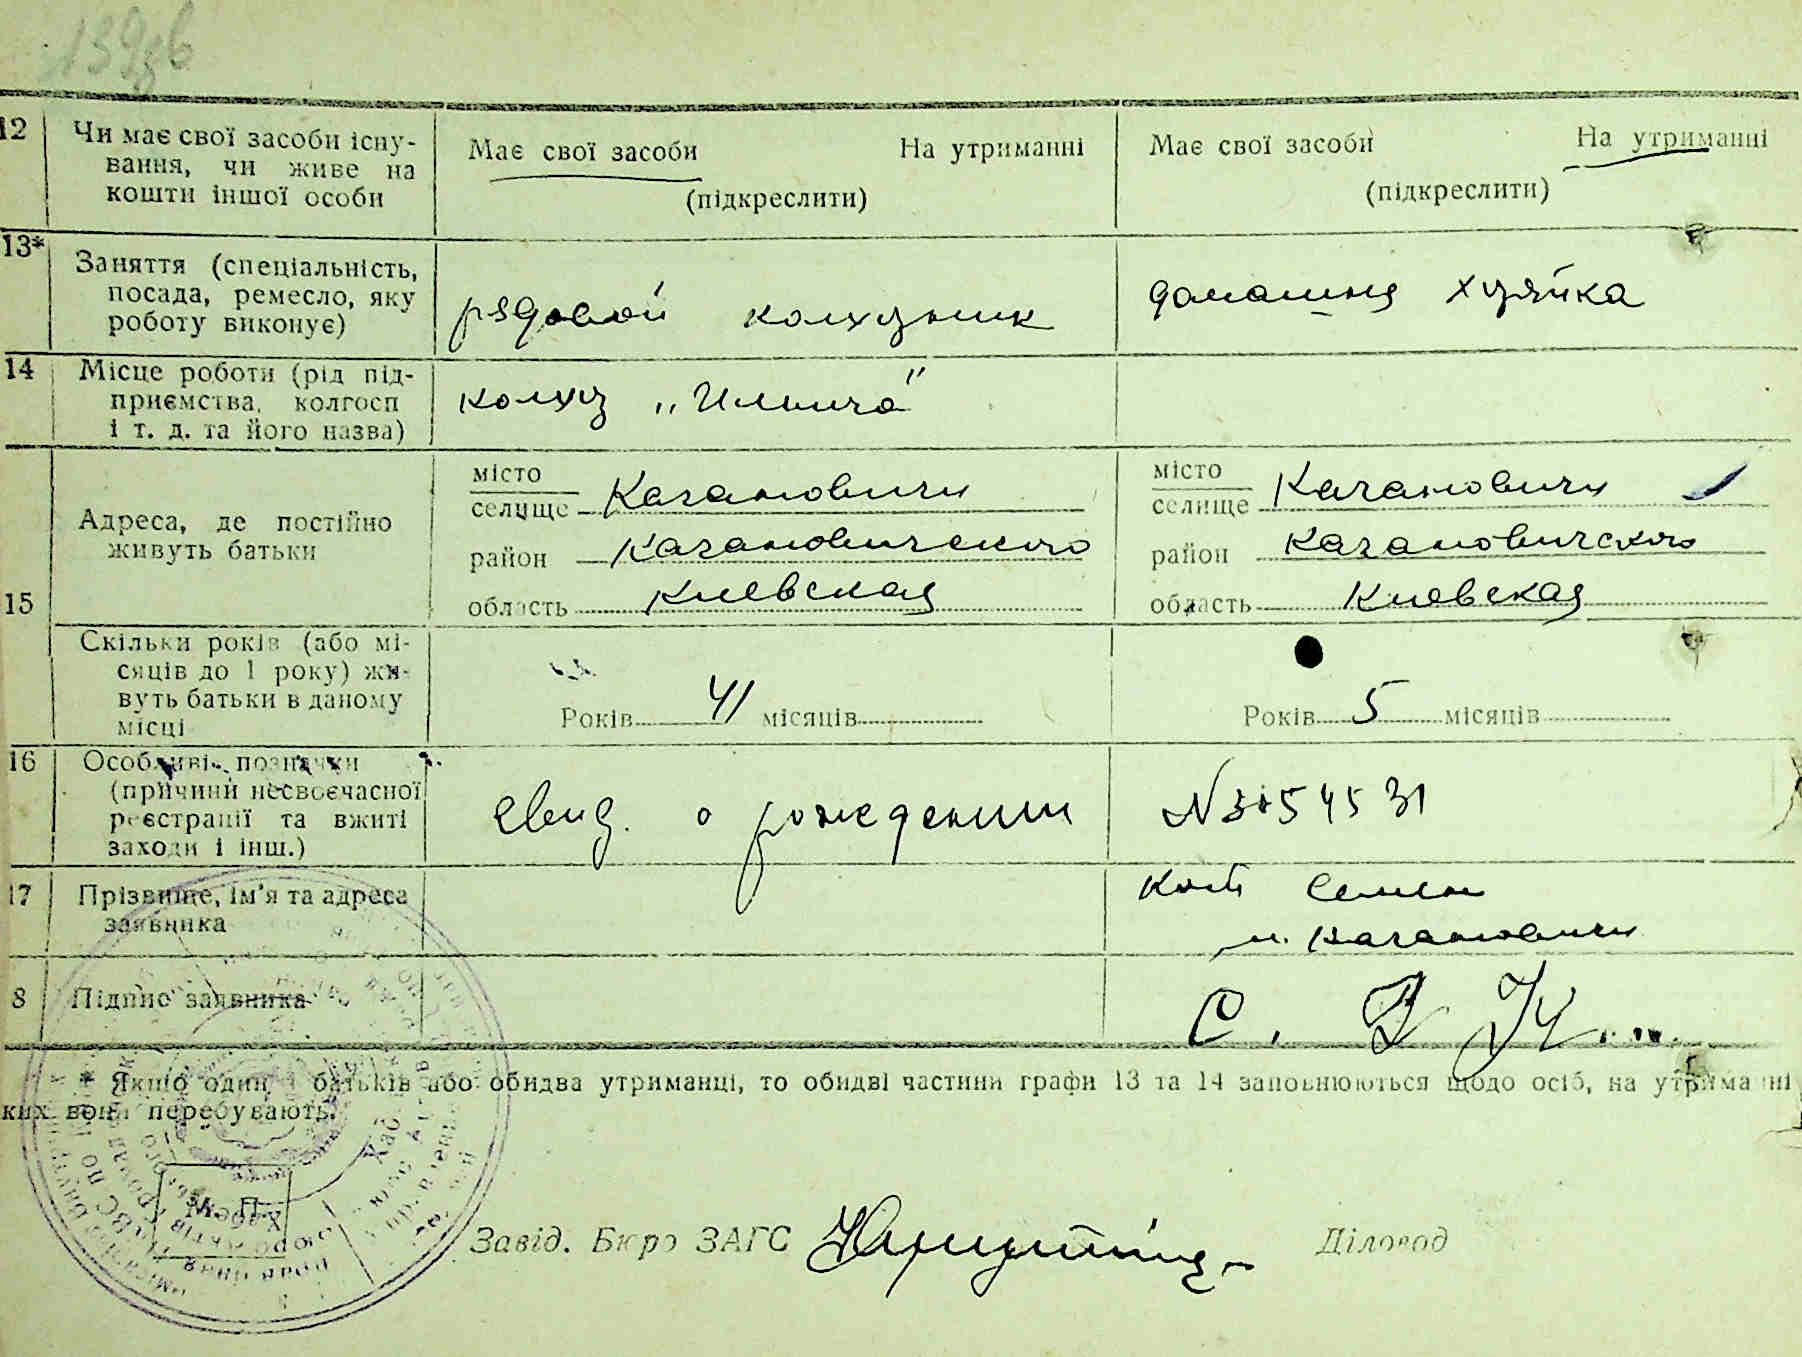 139зв
12 Чи має свої засоби існу-
вання, чи живе на
кошти іншої особи
Має свої засоби На утриманні
(підкреслити)
Має свої засоби На утриманні
(підкреслити)
13* Заняття (спеціальність,
посада, ремесло, яку
роботу виконує)
рядовой колхозник
домашня хузяйка
14 Місце роботи (рід під-
приємства, колгосп
і т. д. та його назва)
колхоз „Ильича"
15 Адреса, де постійно
живуть батьки
місто
селище Кагановичи
район Кагановичского
область Киевская
місто
селище Кагановичи
район Кагановичского
область Киевская
Скільки років (або мі-
сяців до 1 року) жи-
вуть батьки в даному
місці
Років 41 місяців
Років 5 місяців
16 Особливі позначки
(причини несвоєчасної
реєстрації та вжиті
заходи і інш.)
свид. о рождении
17 Прізвище, ім'я та адреса
заявника
Семен
м. Кагановичи
8 Підпис заявника
С.
* Якщо один з батьків або обидва утриманці, то обидві частини графи 13 та 14 заповнюються щодо осіб, на утриманні
ких вони перебувають.
М. П.
Завід. Бюро ЗАГС
Діловод